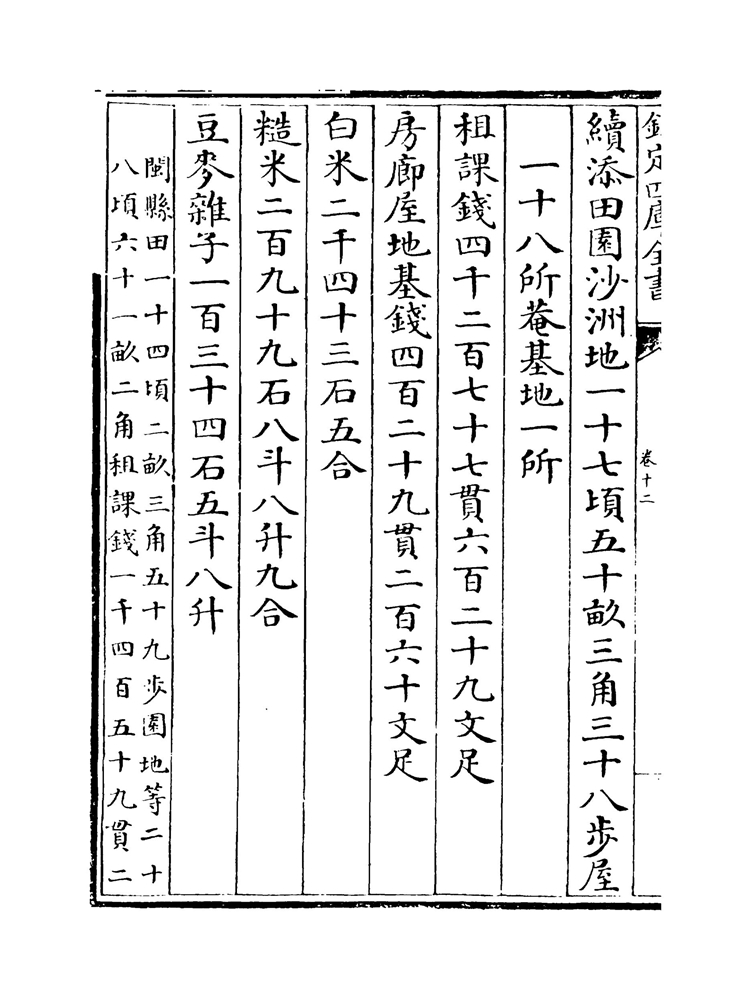 欽定四庫全書
卷十二
續添田園沙洲地一十七頃五十畝三角三十八步屋
一十八所菴基地一所
租課錢四千二百七十七貫六百二十九文足
房廊屋地基錢四百二十九貫二百六十文足
白米二千四十三石五合
糙米二百九十九石八斗八升九合
豆麥雜子一百三十四石五斗八升
閩縣田一十四頃二畝三角五十九步園地等二十
八頃六十一畝二角租課錢一千四百五十九貫二